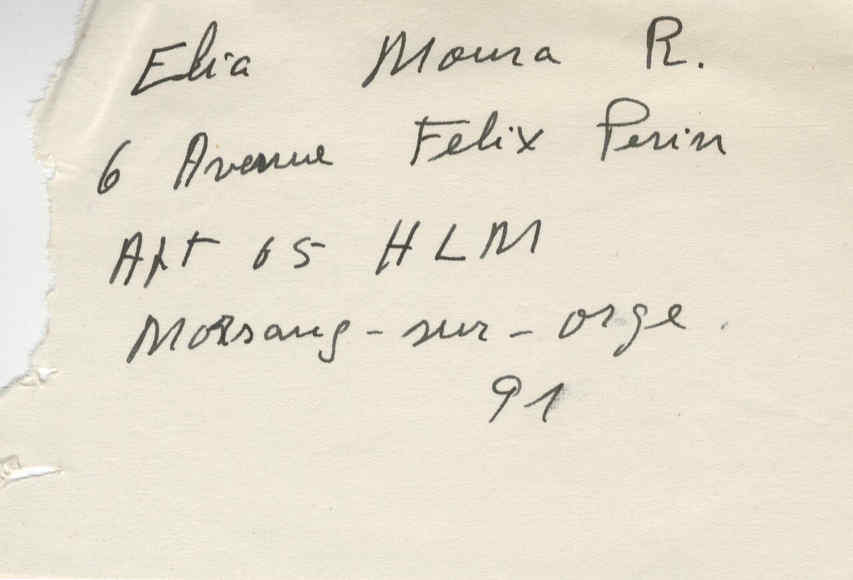 Elia Moura R.
6 Avenue Felix Perin
Apt 65 HLM
Morsang-sur-orge.
91